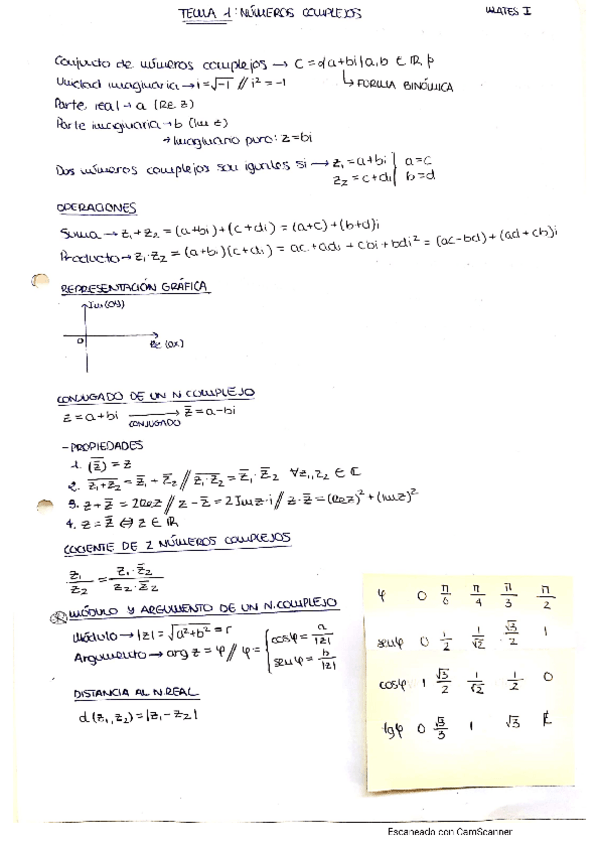 TEMA 1: NÚMEROS COMPLEJOS
MATES I
Conjunto de números complejos → C = {a+bi | a,b ∈ ℝ}
↳ FORMA BINÓMICA
Unidad imaginaria → i = √-1 // i² = -1
Parte real → a (Re z)
Parte imaginaria → b (Im z)
→ Imaginario puro: z = bi
Dos números complejos son iguales si → z₁ = a+bi } a=c
z₂ = c+di } b=d
OPERACIONES
Suma → z₁ + z₂ = (a+bi) + (c+di) = (a+c) + (b+d)i
Producto → z₁ · z₂ = (a+bi)(c+di) = ac + adi + cbi + bdi² = (ac-bd) + (ad+cb)i
REPRESENTACIÓN GRÁFICA
Im (OY)
0
Re (OX)
CONJUGADO DE UN N COMPLEJO
z = a+bi → CONJUGADO z̄ = a-bi
- PROPIEDADES
1. (z̄)‾ = z
2. (z₁+z₂)‾ = z̄₁ + z̄₂ // (z₁·z₂)‾ = z̄₁ · z̄₂ ∀z₁,z₂ ∈ ℂ
3. z + z̄ = 2Re z // z - z̄ = 2 Im z · i // z · z̄ = (Re z)² + (Im z)²
4. z = z̄ ⇔ z ∈ ℝ
COCIENTE DE 2 NÚMEROS COMPLEJOS
z₁/z₂ = z₁·z̄₂ / z₂·z̄₂
MÓDULO Y ARGUMENTO DE UN N. COMPLEJO
Módulo → |z| = √a²+b² = r
Argumento → arg z = φ // φ = { cosφ = a/|z|
senφ = b/|z|
DISTANCIA AL N REAL
d(z₁,z₂) = |z₁ - z₂|
φ 0 π/6 π/4 π/3 π/2
senφ 0 1/2 1/√2 √3/2 1
cosφ 1 √3/2 1/√2 1/2 0
tgφ 0 √3/3 1 √3 ∄
Escaneado con CamScanner